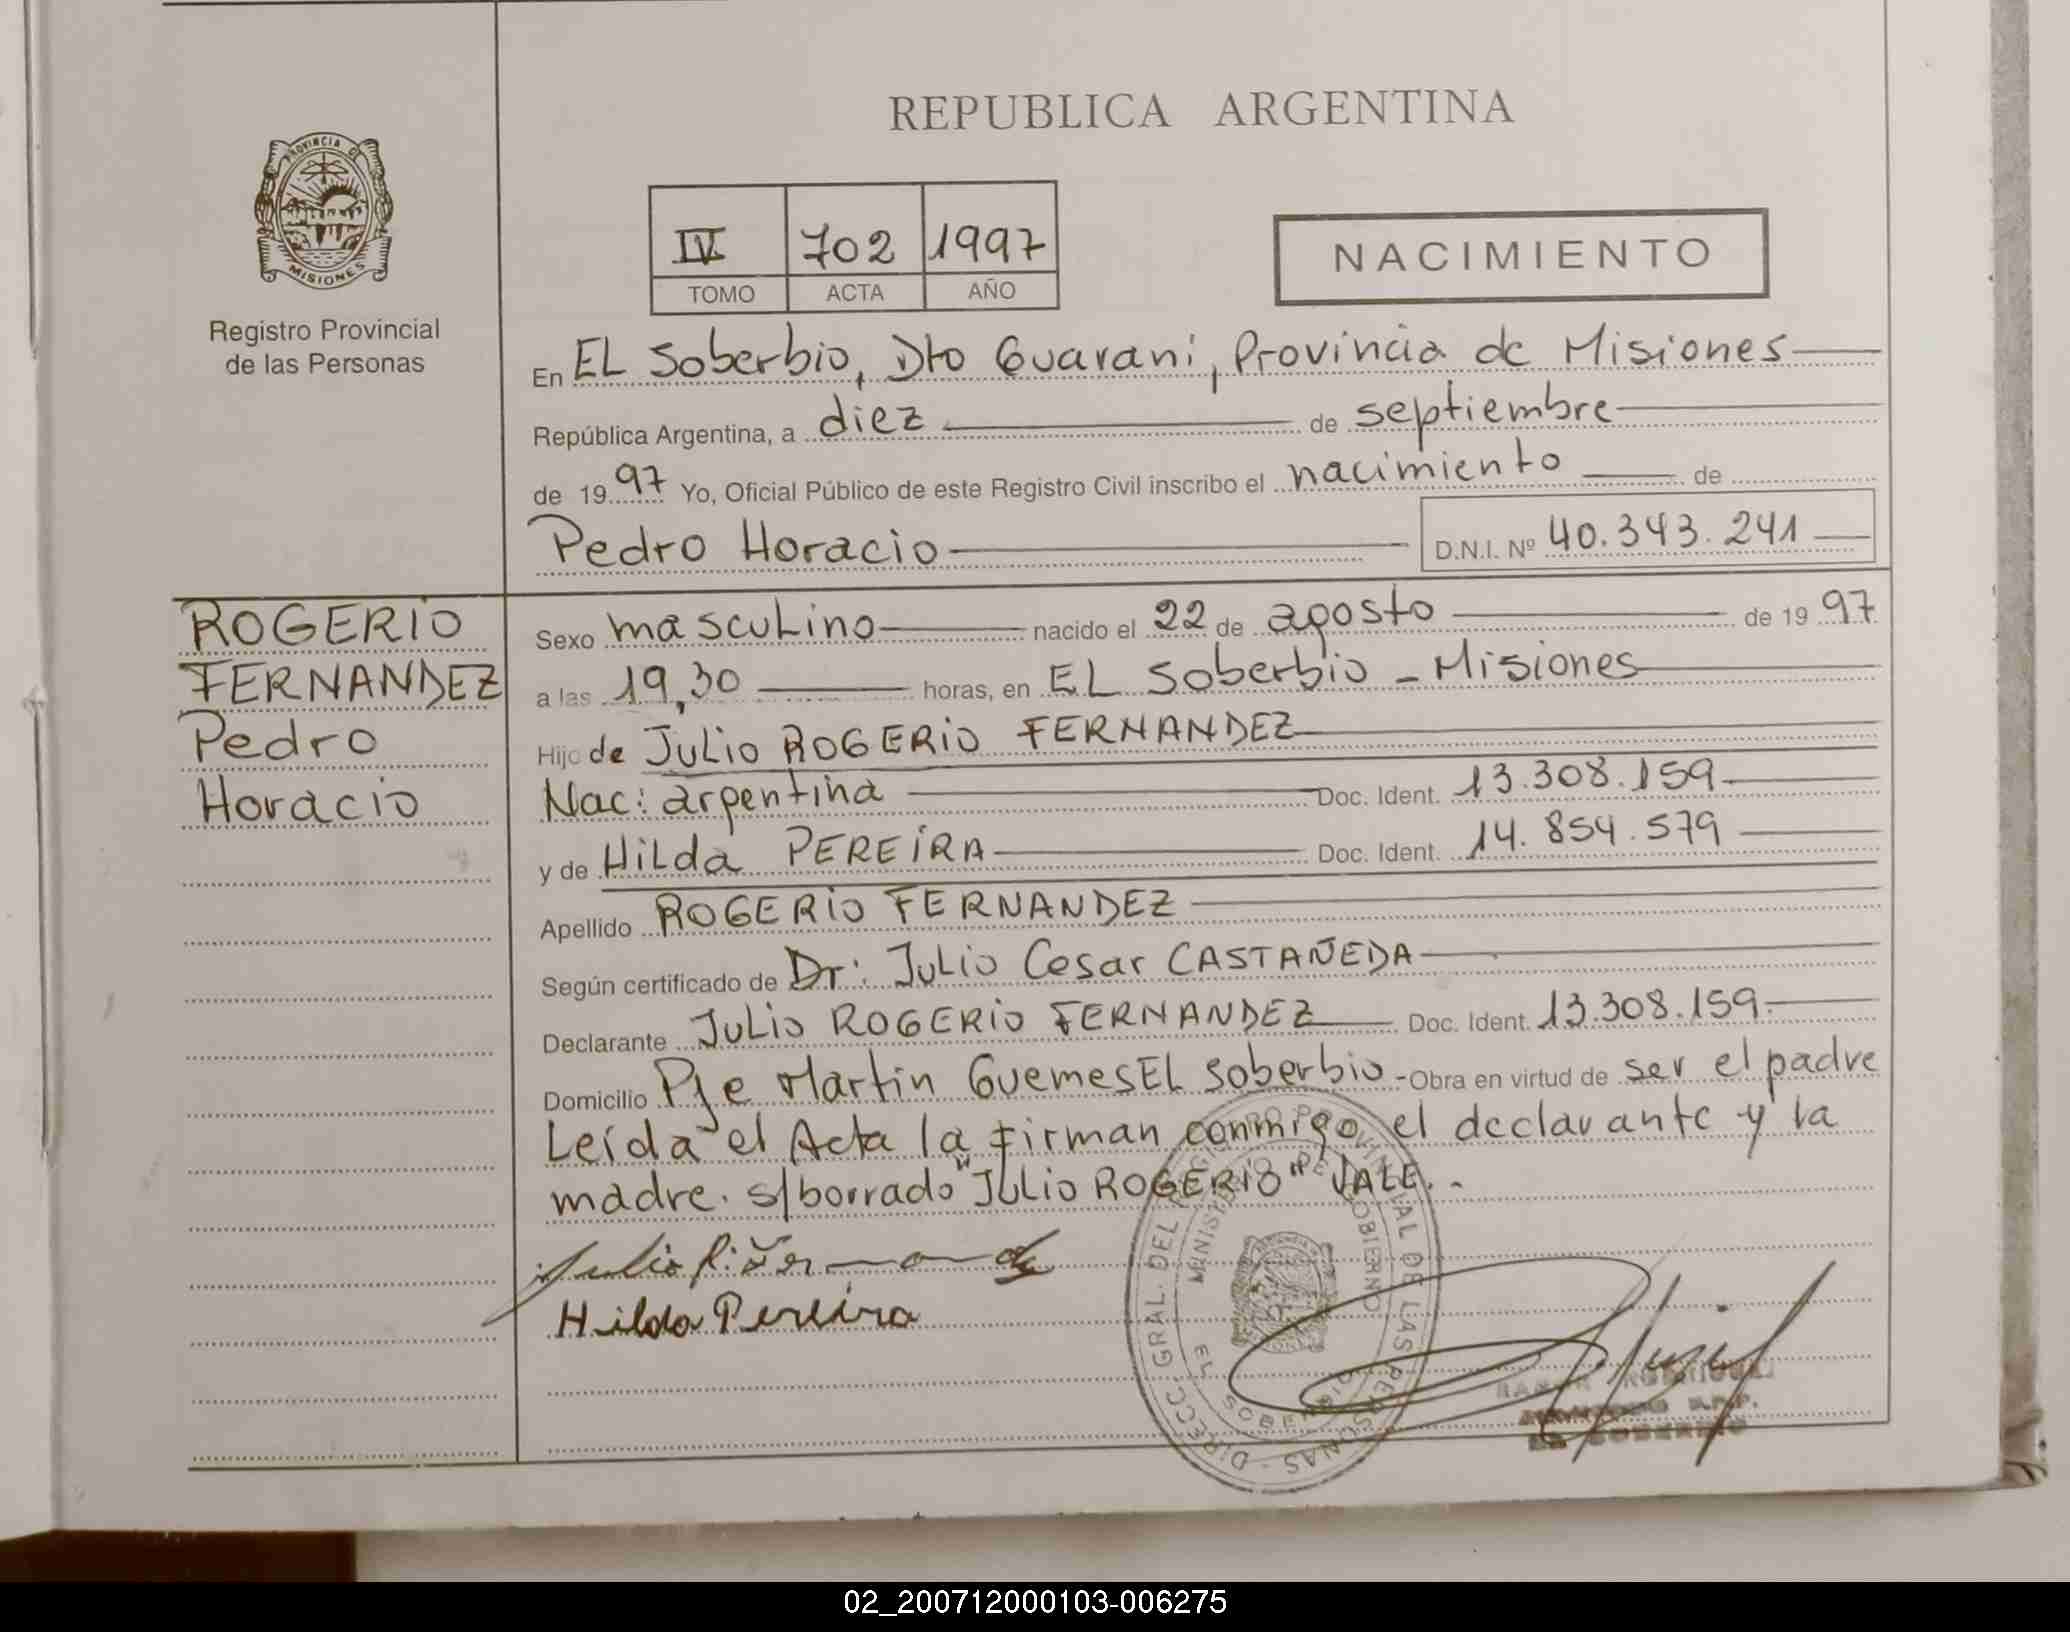 REPUBLICA ARGENTINA
PROVINCIA DE
MISIONES
Registro Provincial
de las Personas
IV 702 1997
TOMO ACTA AÑO
NACIMIENTO
En EL Soberbio, Dto Guarani, Provincia de Misiones
República Argentina, a diez de septiembre
de 1997 Yo, Oficial Público de este Registro Civil inscribo el nacimiento de
Pedro Horacio D.N.I. Nº 40.343.241
ROGERIO
FERNANDEZ
Pedro
Horacio
Sexo masculino nacido el 22 de agosto de 1997
a las 19,30 horas, en EL Soberbio - Misiones
Hijo de Julio ROGERIO FERNANDEZ
Nac: argentina Doc. Ident. 13.308.159
y de Hilda PEREIRA Doc. Ident. 14.854.579
Apellido ROGERIO FERNANDEZ
Según certificado de Dr: Julio Cesar CASTAÑEDA
Declarante Julio ROGERIO FERNANDEZ Doc. Ident. 13.308.159
Domicilio Pje Martin Guemes EL Soberbio - Obra en virtud de ser el padre
Leída el Acta la firman conmigo el declarante y la
madre. s/borrado "Julio ROGERIO" VALE.-
Julio R. Fernandez
Hilda Pereira
DIRECC. GRAL. DEL REGISTRO PROVINCIAL DE LAS PERSONAS
MINISTERIO DE GOBIERNO
EL SOBERBIO
EL SOBERBIO
02_200712000103-006275